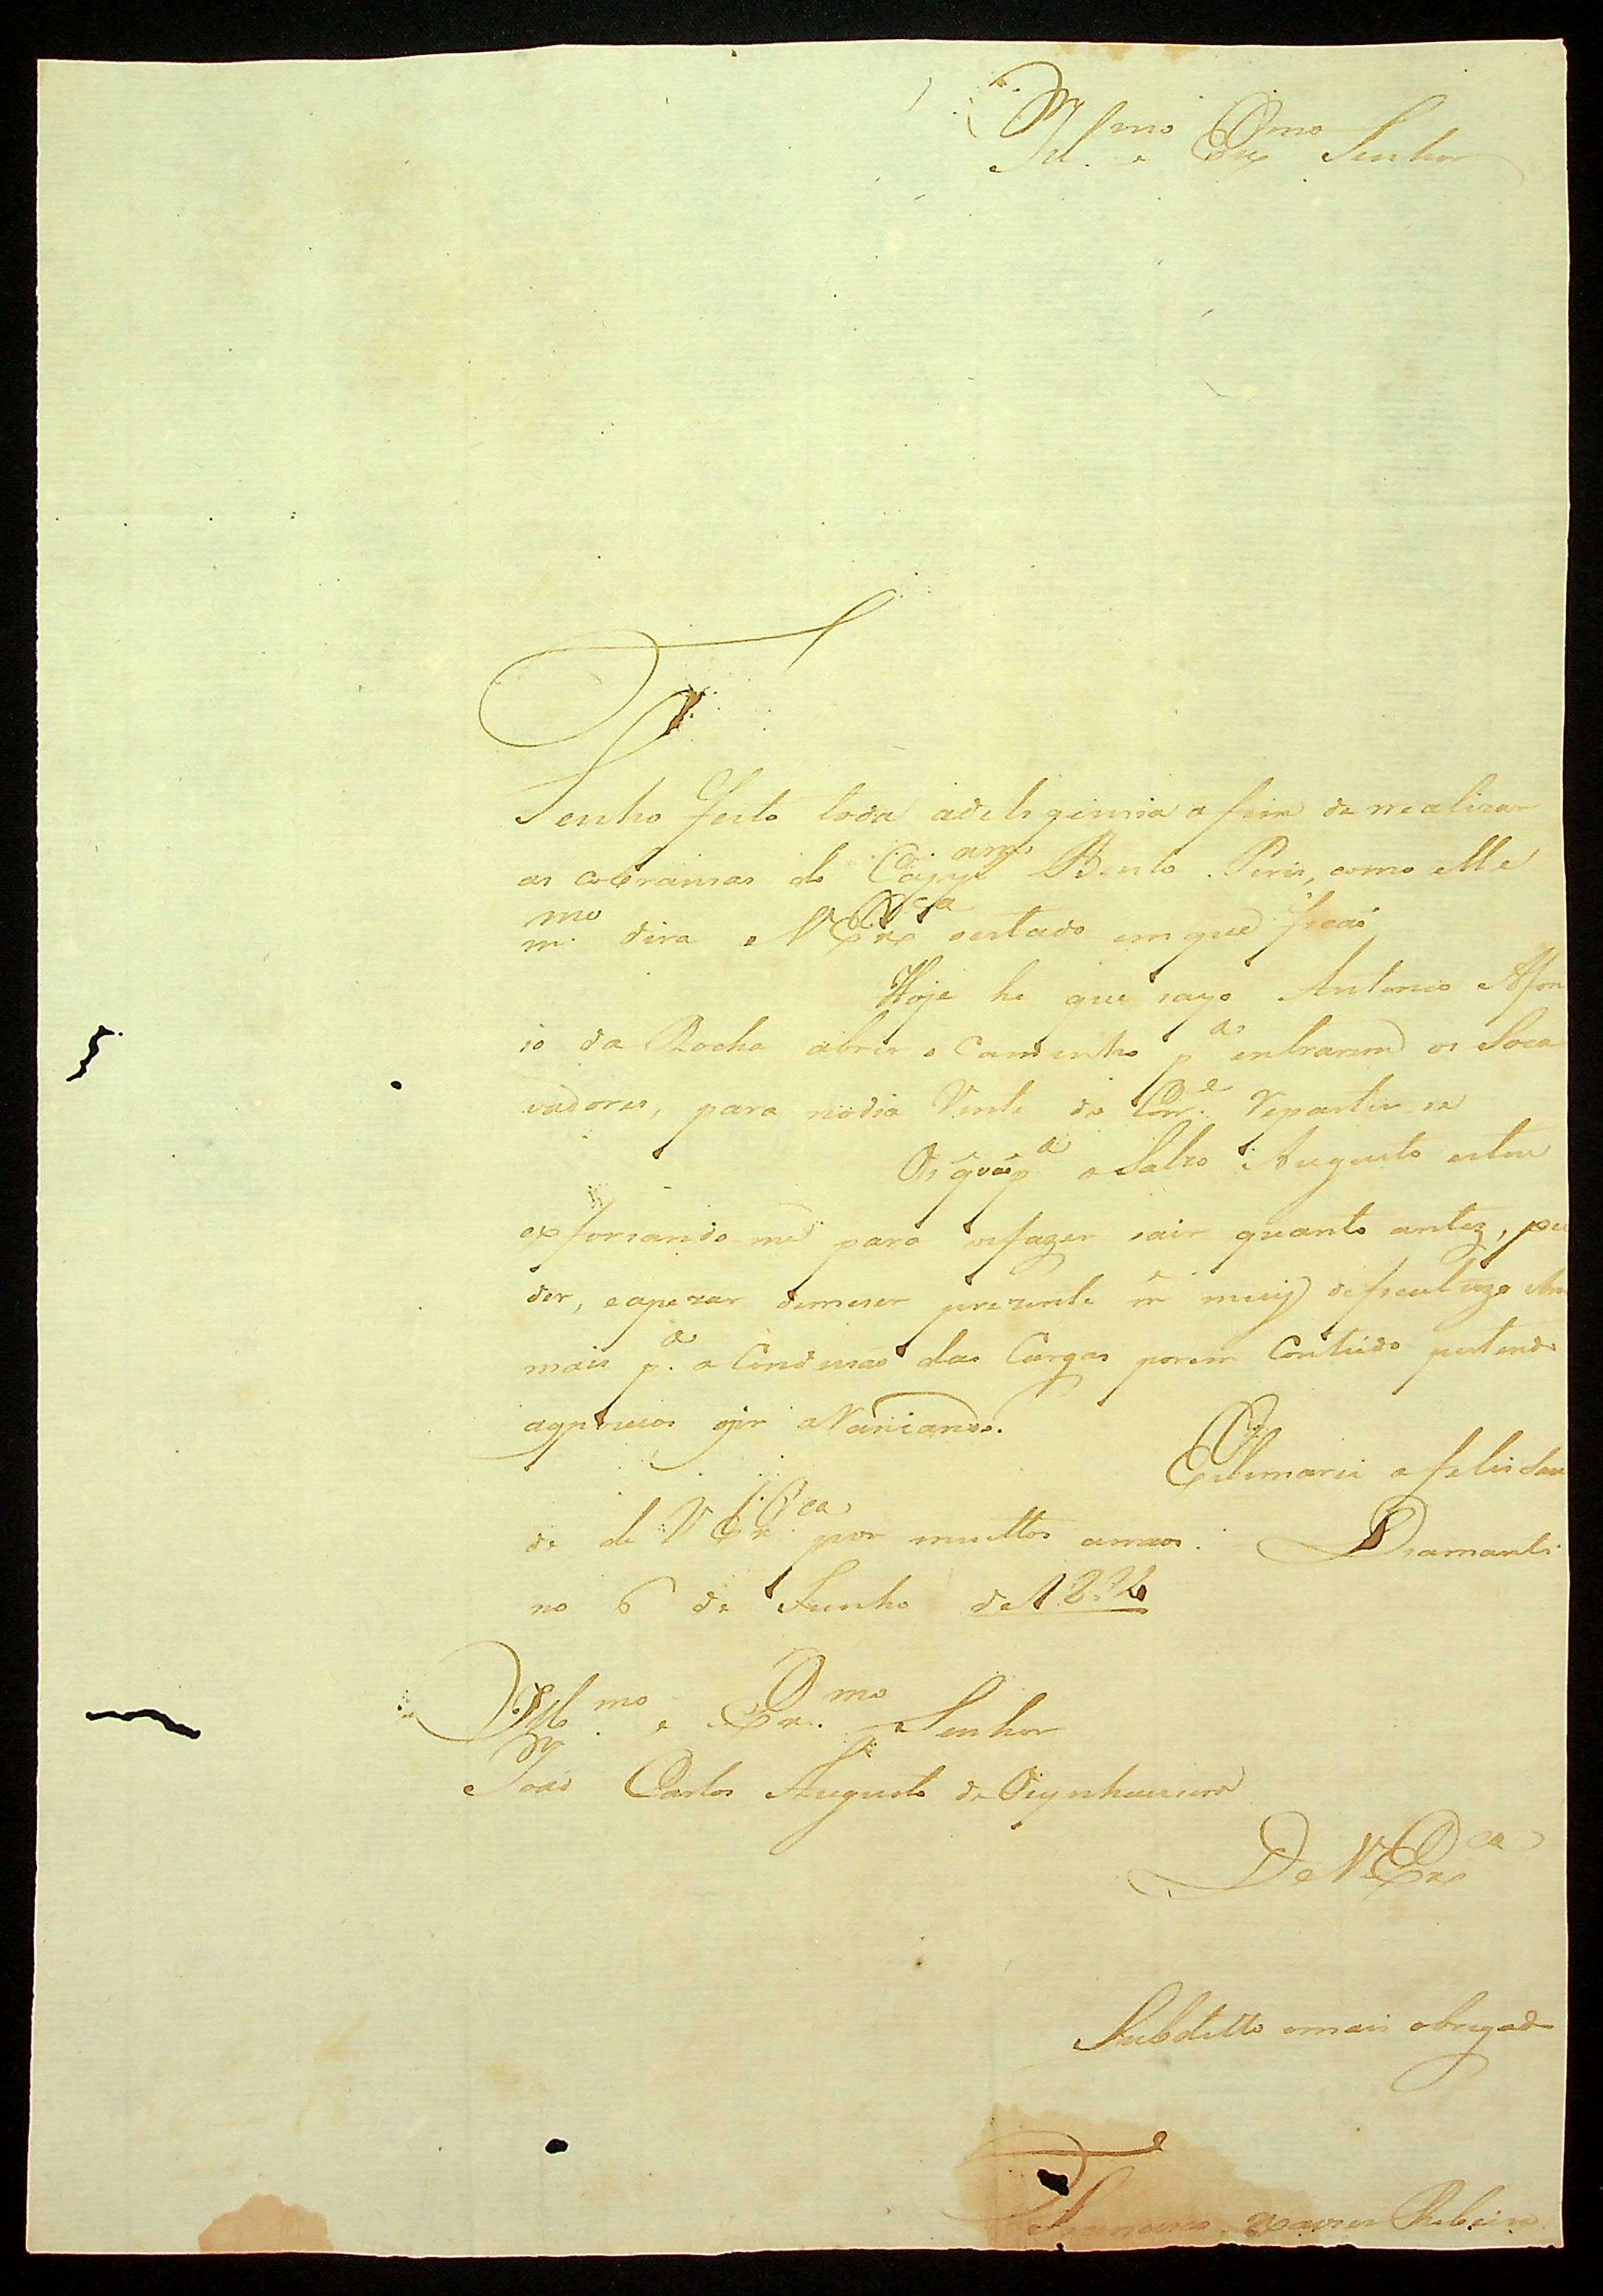 Ill.mo e Ex.mo Senhor
Tenho feito toda adeligencia afim de realizar
as cobransas do Bento Pires, como elle
m.mo dira a V Ex.ca oestado emque ficaõ
Hoje he que sayo Antonio Afon
so da Rocha abrir o Caminho p.a entrarem os Soca
vadores, para nodia Vinte do Corr.e Repartir se
Os p.a o Salto Augusto estou
exforsando me para osfazer sair quanto antez,
der, eapezar demeser prezente
mais p.a a Condusaõ das Cargas porem Contudo pertendo
aVansando.
Estimarei a felis Sau
de de V Ex.ca por muittos annos. Diamanti
no 6 de Junho de
Ill.mo e Ex.mo Senhor
Joaõ Carlos Augusto de Oeynhausen
De V Ex.ca
Subditto omais obrigado
Francisco Xavier Ribeiro